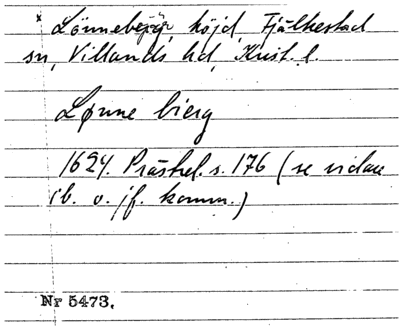 × Lönneberga, höjd, Fjälkestad
sn, Villands hd, Krist. l.
Lønne bierg
1624. Prästrel. s. 176 (se vidare
ib. o. jf. komm.)
Nr 5473.